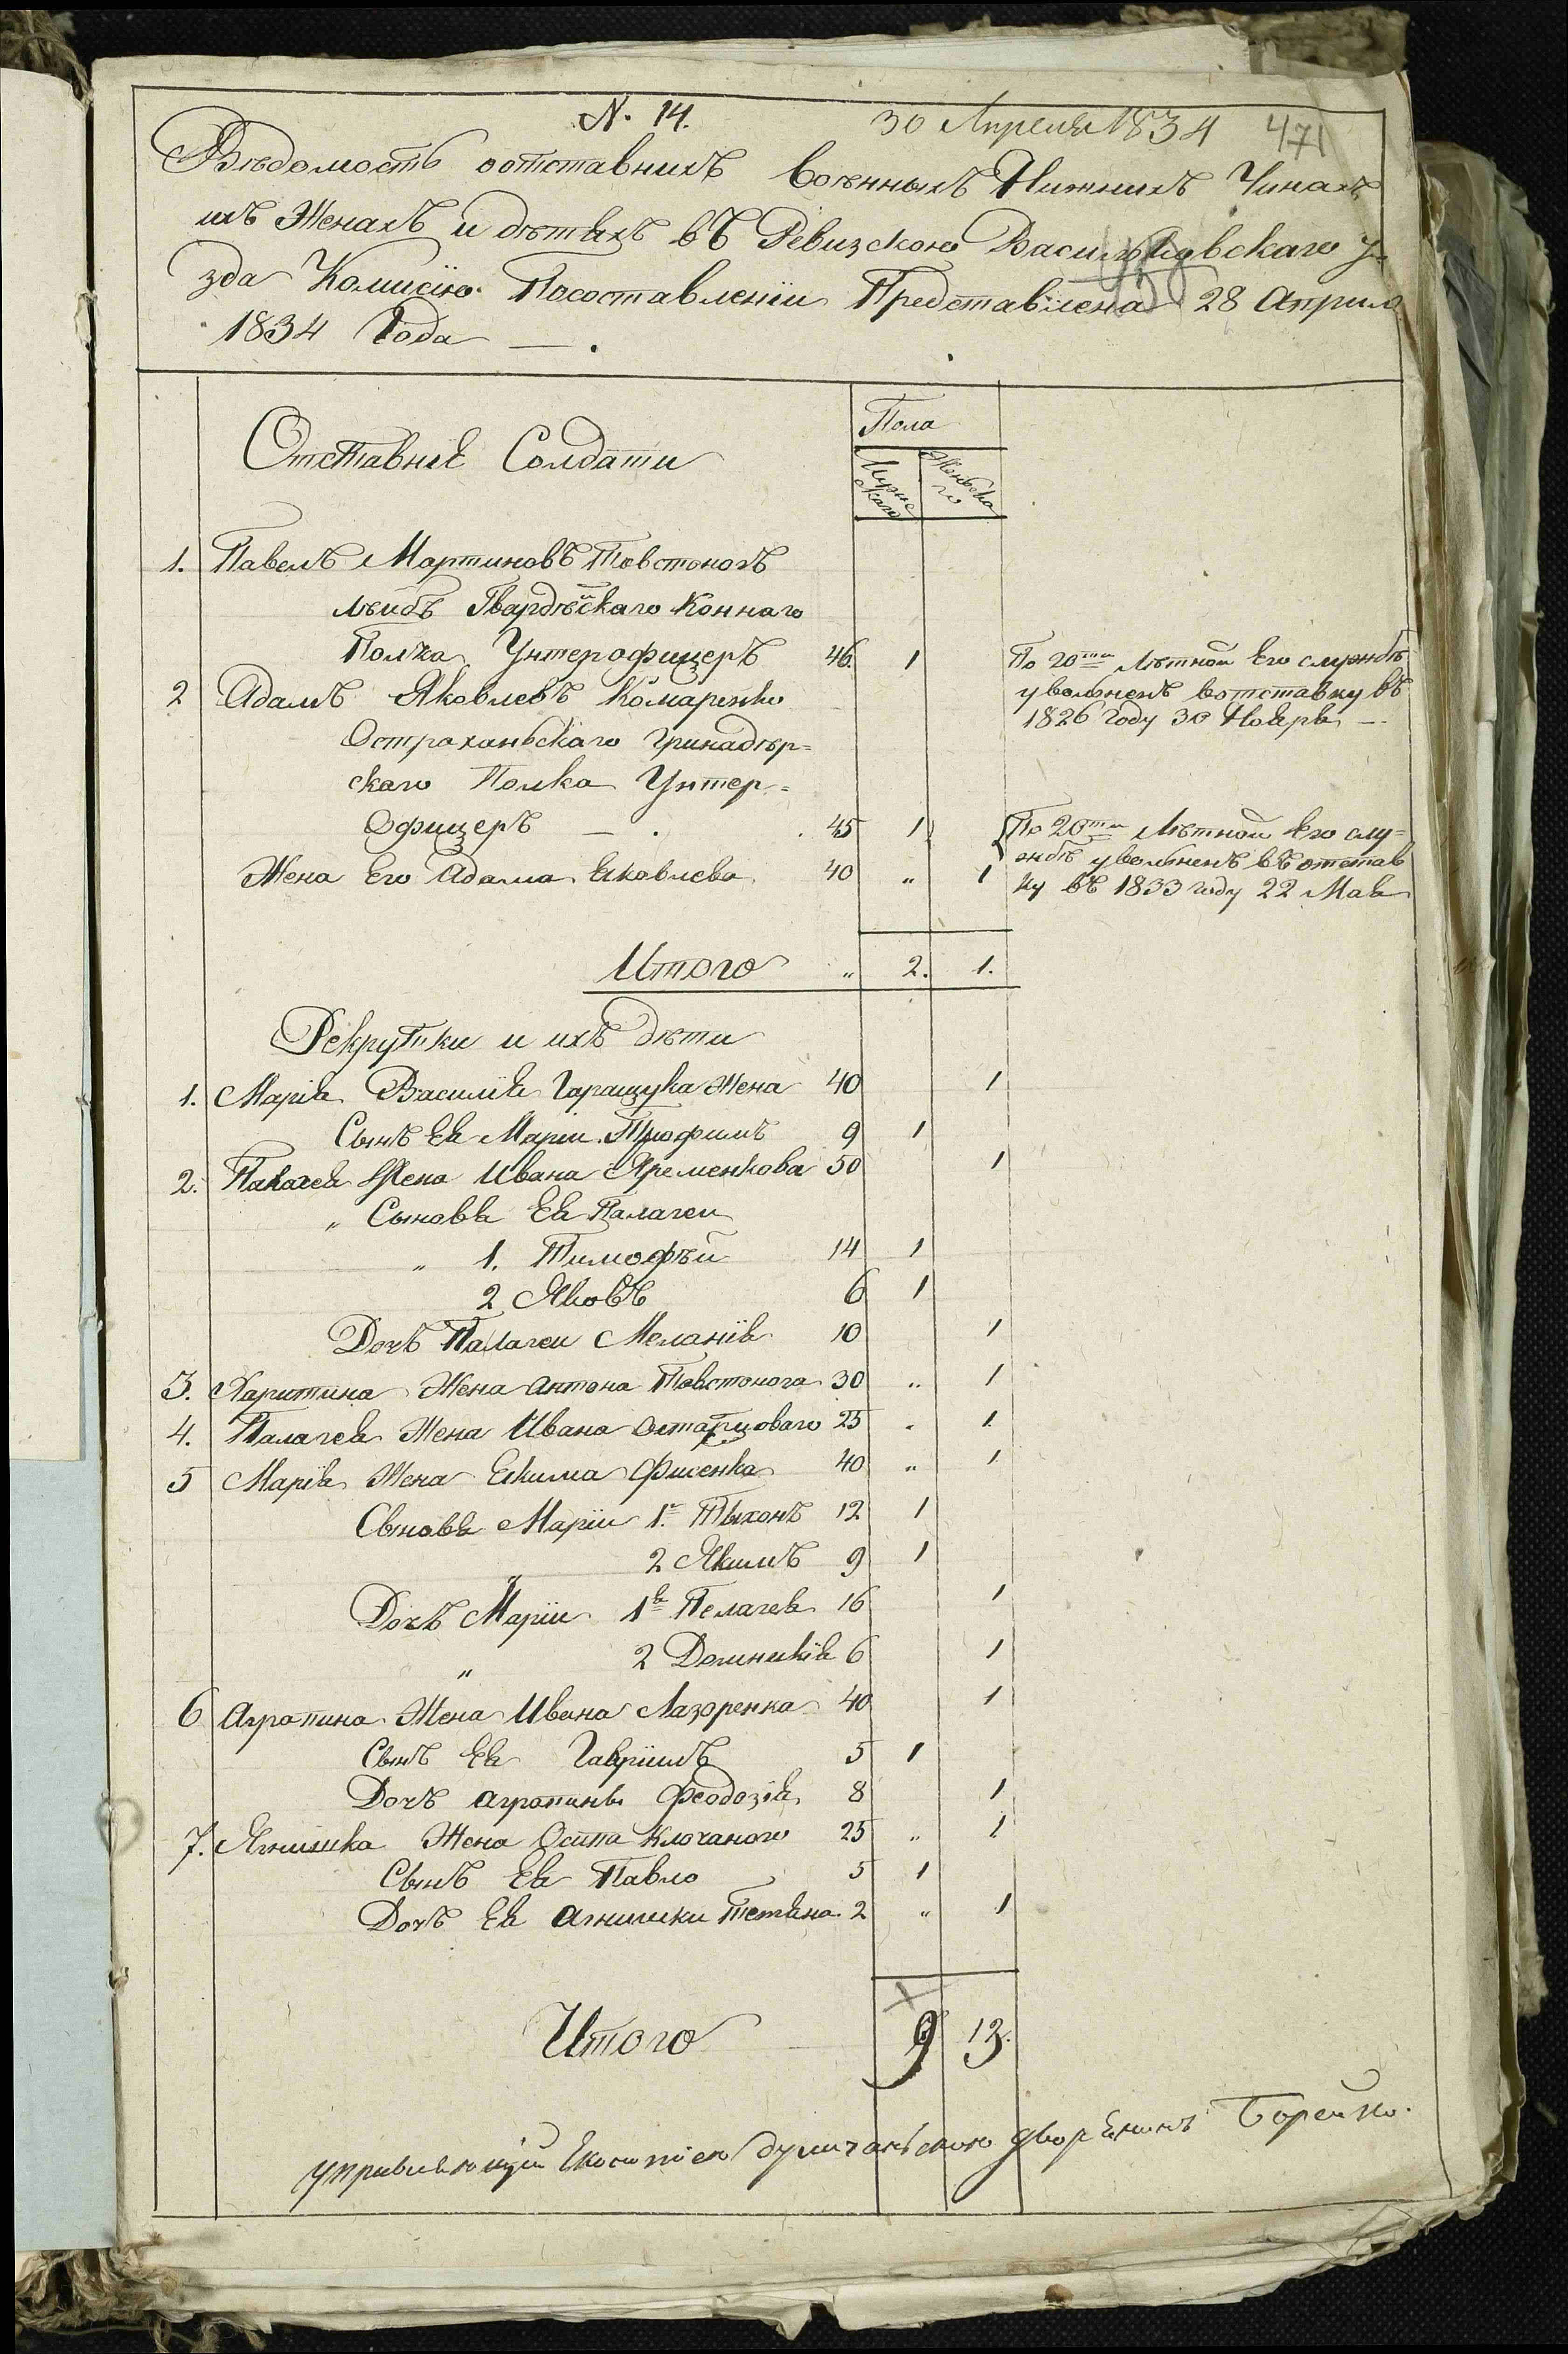 N. 14. 30 Апреля 1834 471
Вѣдомость оотставнихъ военныхъ Нижнихъ Чинахъ
ихъ Женахъ и дѣтяхъ въ Ревизскою Васильковского уѣ
зда Комисію Посоставленіи Представлена 28 Априля
1834 Года — .
Отставніе Солдати
Пола
Мужс
каго
Женьска
го
1. Павелъ Мартиновъ Товстоногъ
лѣйбъ Гвардѣйскаго Коннаго
Полка Унтерофицеръ 46. 1
По 20ти лѣтной Его службѣ
уволненъ вотставку въ
1826 Году 30 Ноября —
2 Адамъ Яковлевъ Комаренко
Остраханьскаго Гринадѣр=
скаго Полка Унтер=
Офицеръ — . . 45 1
По 20ти Лѣтной Его слу=
жбѣ уволненъ въ отстав
ку въ 1833 году 22 Мая
Жена Его Адама Яковлева 40 „ 1
Итого „ 2. 1.
Рекрутки и ихъ дѣти
1. Марія Василия Гаращука Жена 40 1
Сынъ Ея Маріи Трофимъ 9 1
2. Палагея Жена Ивана Яременкова 50 1
„ Сыновя Ея Палагеи
„ 1. Тимофѣй 14 1
2 Яковъ 6 1
Дочъ Палагеи Меланія 10 1
3. Харитина Жена Антона Товстонога 30 „ 1
4. Палагея Жена Ивана Остапцоваго 25 „ 1
5 Марія Жена Якима Фисенка 40 „ 1
Сыновя Маріи 1. Тыхонъ 12 1
„ 2 Якимъ 9 1
Дочъ Маріи 1я Пелагея 16 1
„ 2 Доминикія 6 1
6 Аграпина Жена Ивана Лазоренка 40 1
Сынъ Ея Гавріилъ 5 1
Дочъ Аграпины Феодозія 8 1
7. Ягнишка Жена Осипа Клочаного 25 „ 1
Сынъ Ея Павло 5 1
Дочъ Ея Агнишки Тетяна 2 „ 1
Итого 9 13.
управляющій дворянинъ Борейко.